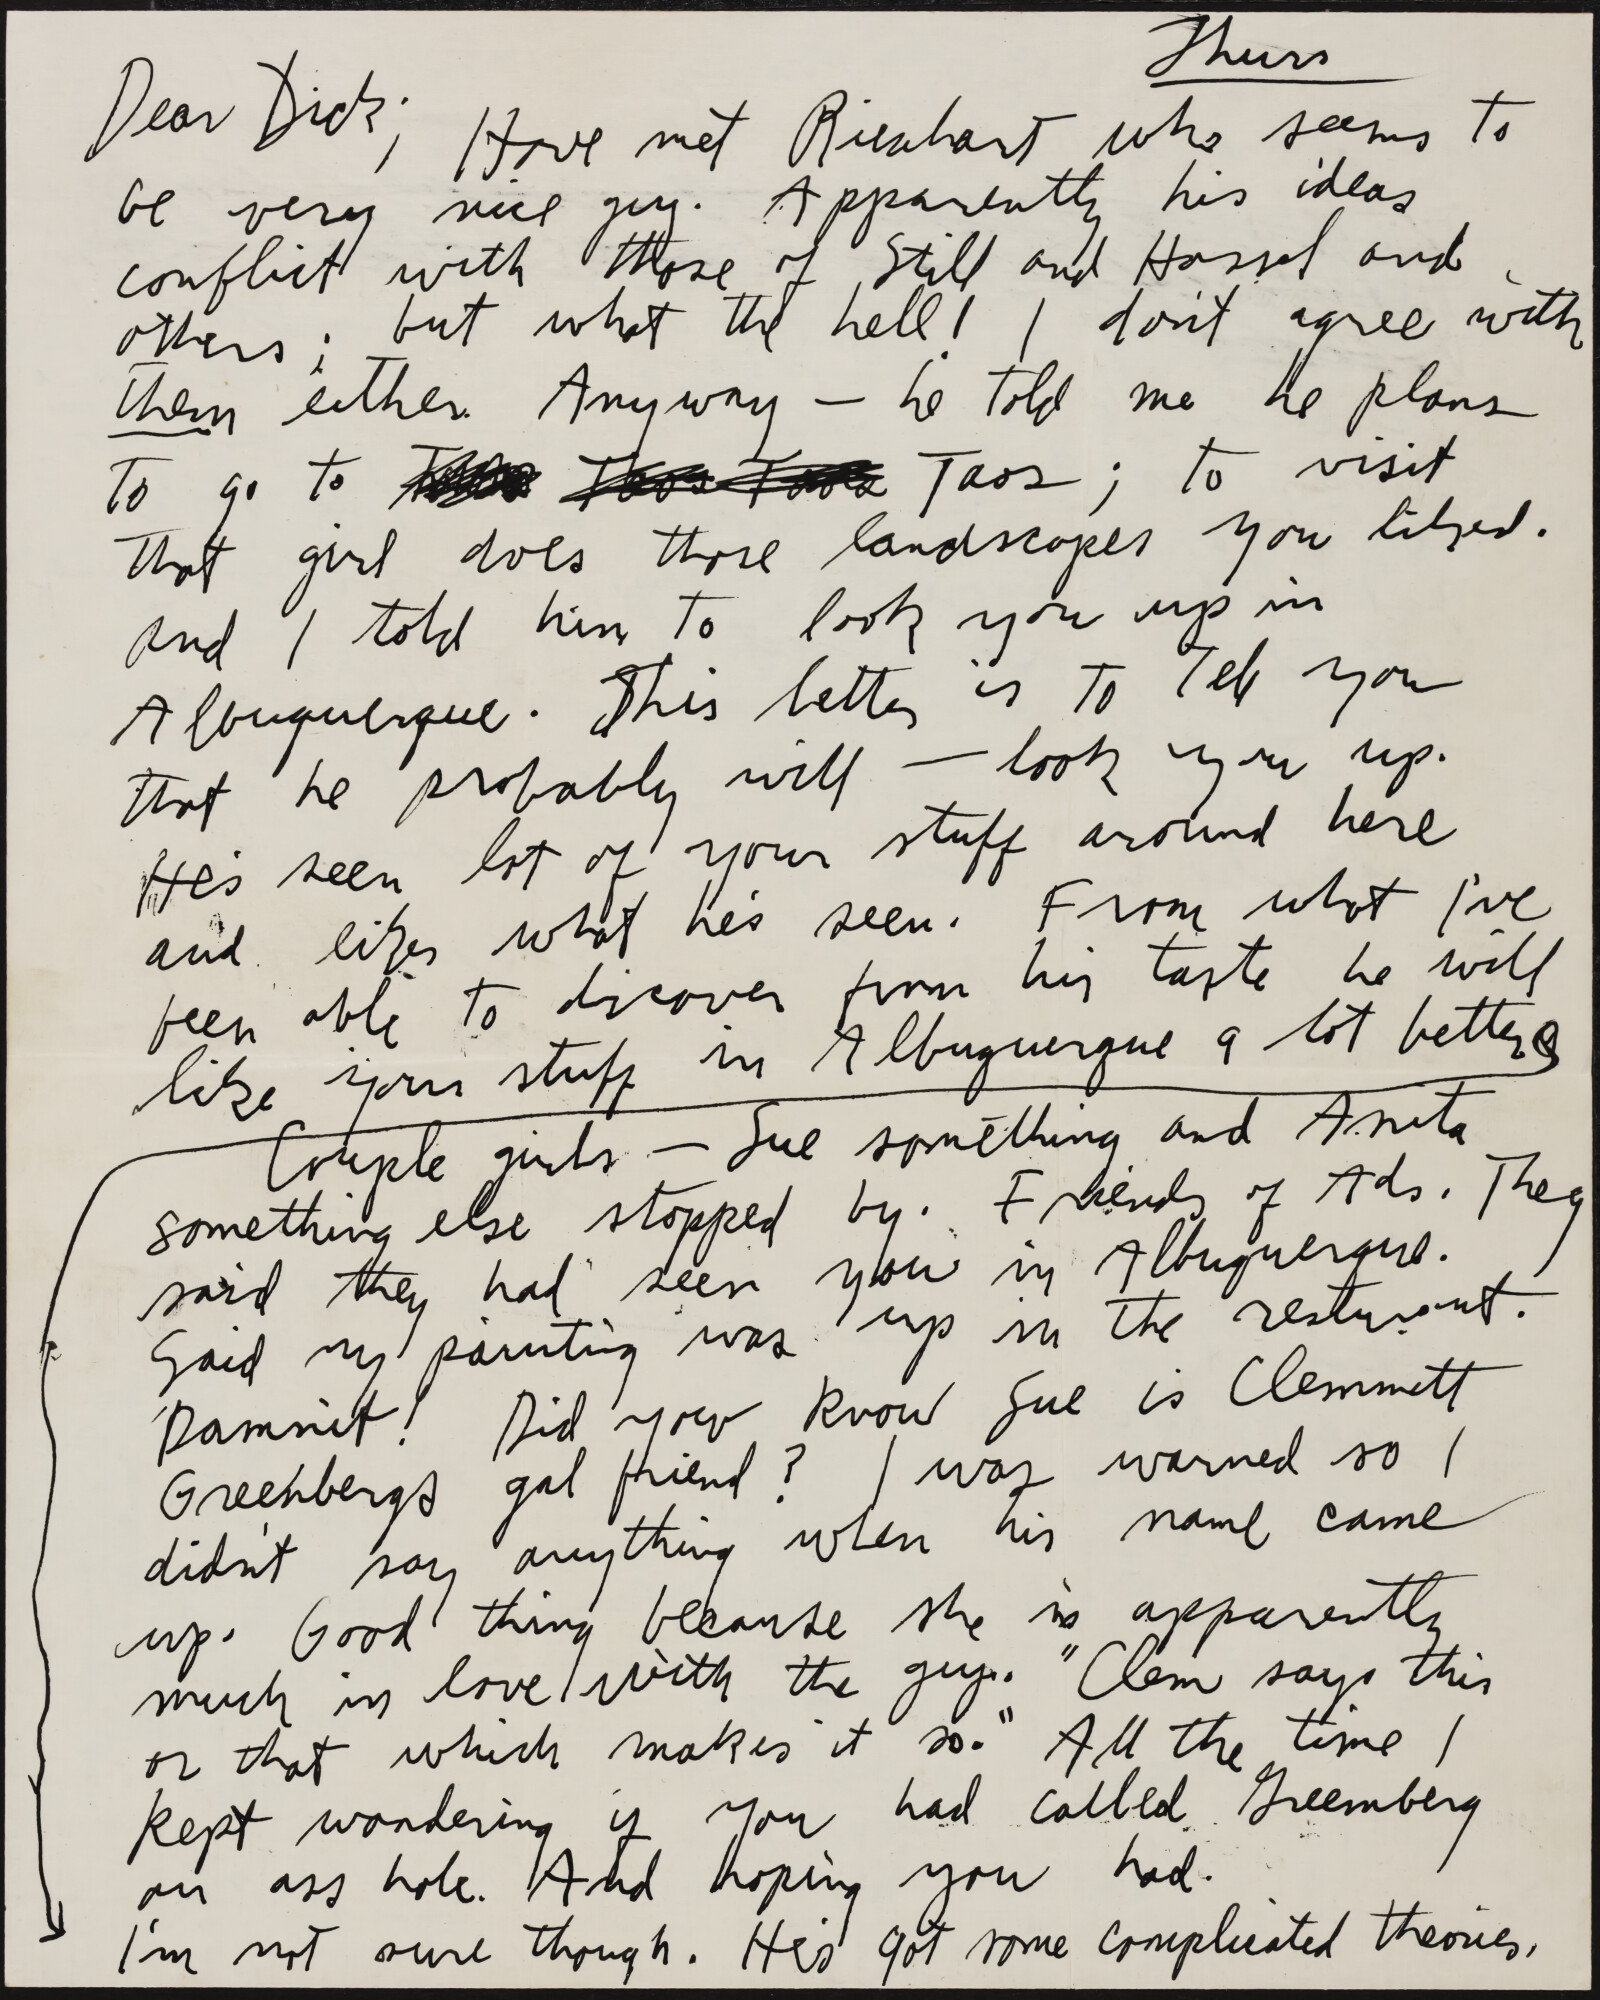 Thurs
Dear Dick; Have met Rienhart who seems to
be very nice guy. Apparently his ideas
conflict with those of Still and Hassel and
others; but what the hell! I don't agree with
them either. Anyway — he told me he plans
to go to Taos; to visit
that girl does those landscapes you liked.
And I told him to look you up in
Albuquerque. This letter is to tell you
that he probably will — look you up.
He's seen lot of your stuff around here
and likes what he's seen. From what I've
been able to discover from his taste he will
like your stuff in Albuquerque a lot better.
Couple girls — Sue something and Anita
something else stopped by. Friends of Ads. They
said they had seen you in Albuquerque.
Said my painting was up in the resturant.
Damnit! Did you know Sue is Clemmett
Greenbergs gal friend? I was warned so I
didn't say anything when his name came
up. Good thing because she is apparently
much in love with the guy. "Clem says this
or that which makes it so." All the time I
kept wondering if you had called Greemberg
an ass hole. And hoping you had.
I'm not sure though. He's got some complicated theories.